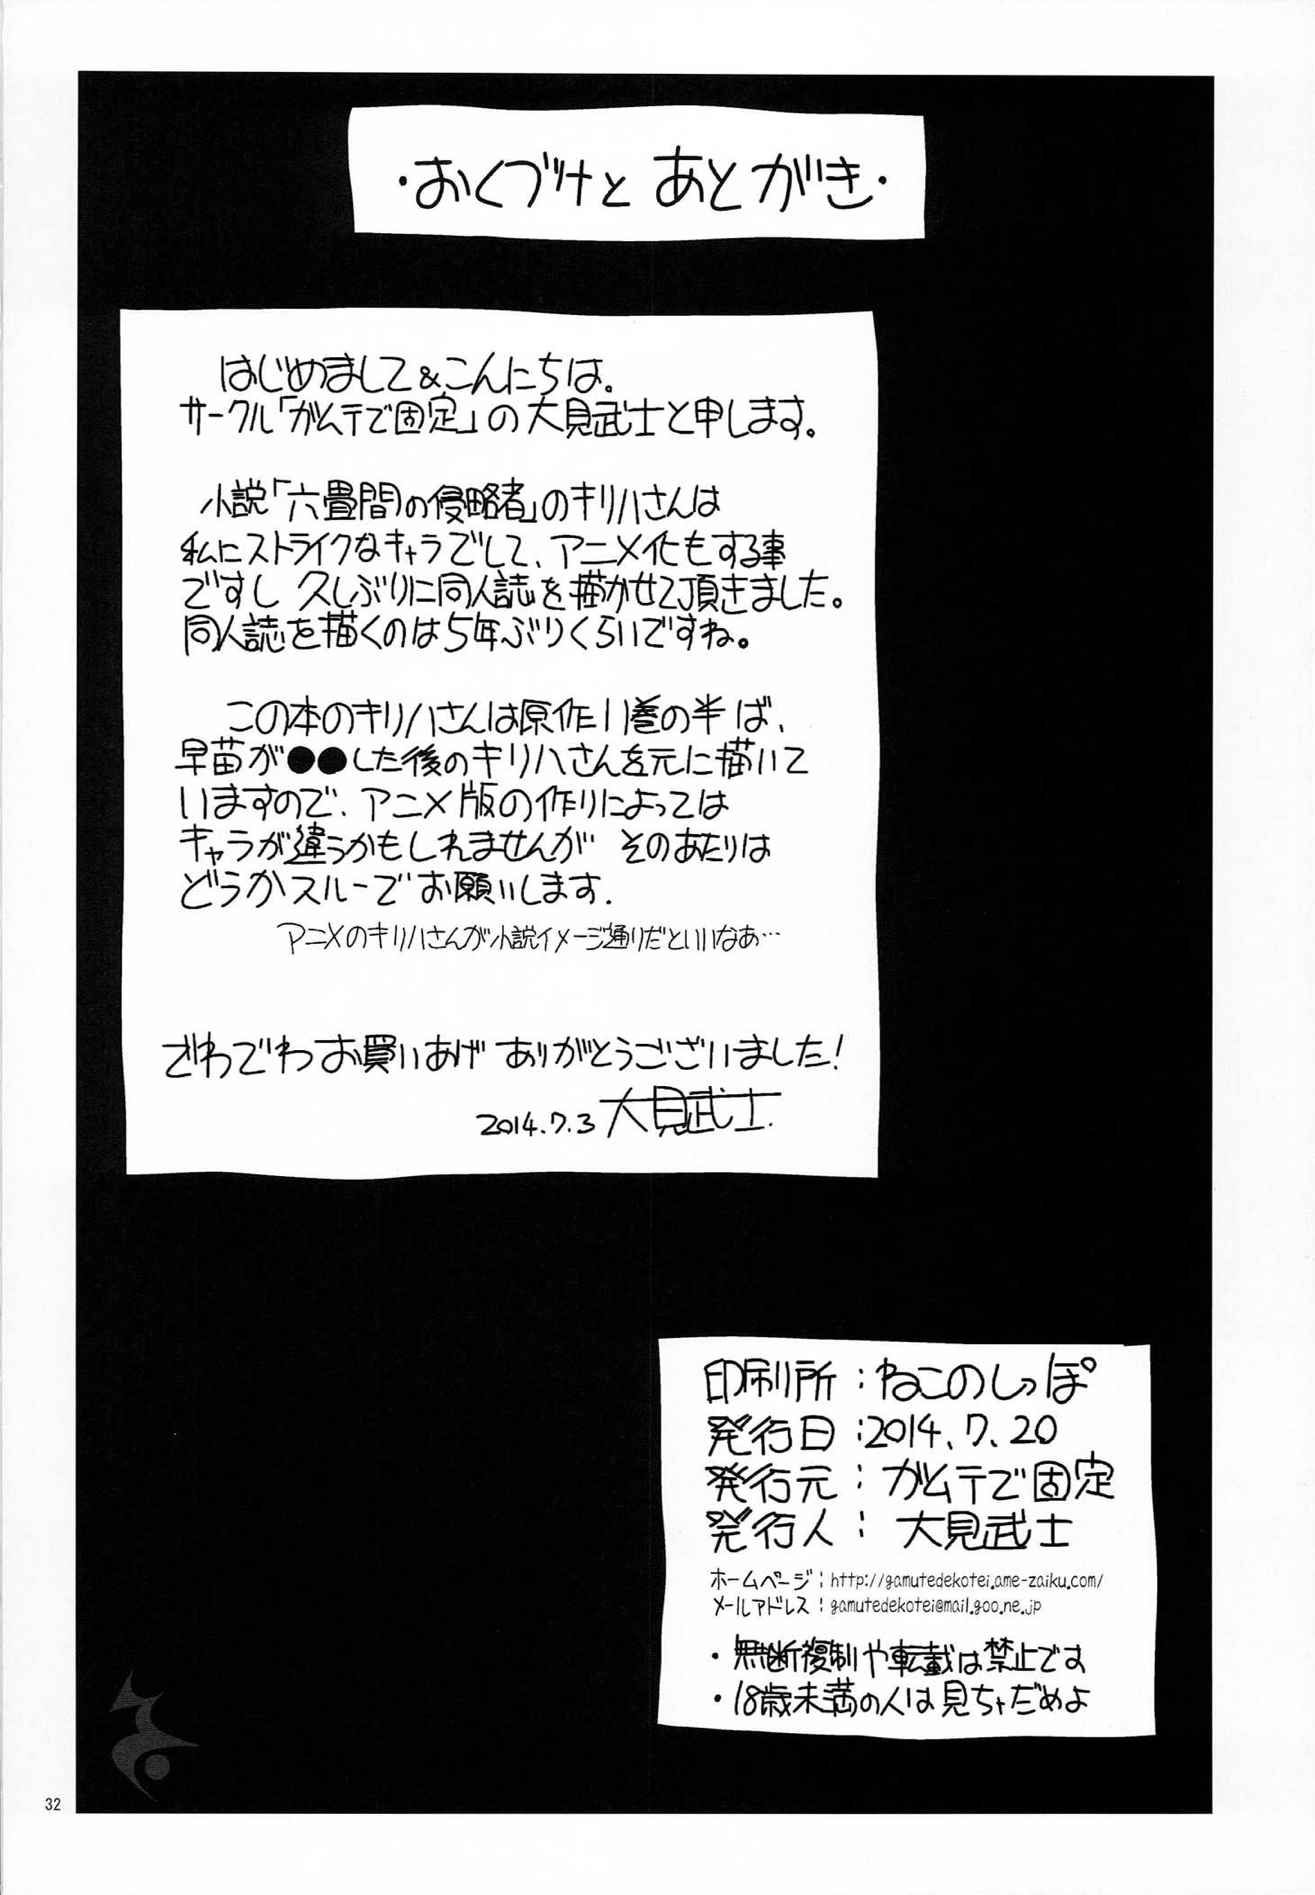 ・おくづけと あとがき・
はじめまして&こんにちは。
サークル「ガムテで固定」の大見武士と申します。
小説「六畳間の侵略者」のキリハさんは
私にストライクなキャラでして、アニメ化もする事
ですし 久しぶりに同人誌を描かせて頂きました。
同人誌を描くのは5年ぶりくらいですね。
この本のキリハさんは原作11巻の半ば、
早苗が●●した後のキリハさんを元に描いて
いますので、アニメ版の作りによっては
キャラが違うかもしれませんが そのあたりは
どうかスルーでお願いします.
アニメのキリハさんが小説イメージ通りだといいなあ…
ざわでわお買いあげ ありがとうございました!
2014.7.3 大見武士.
印刷所:ねこのしっぽ
発行日:2014.7.20
発行元:ガムテで固定
発行人:大見武士
ホームページ:http://gamutedekotei.ame-zaiku.com/
メールアドレス:gamutedekotei@mail.goo.ne.jp
・無断複制や転載は禁止です
・18歳未満の人は見ちゃだめよ
32